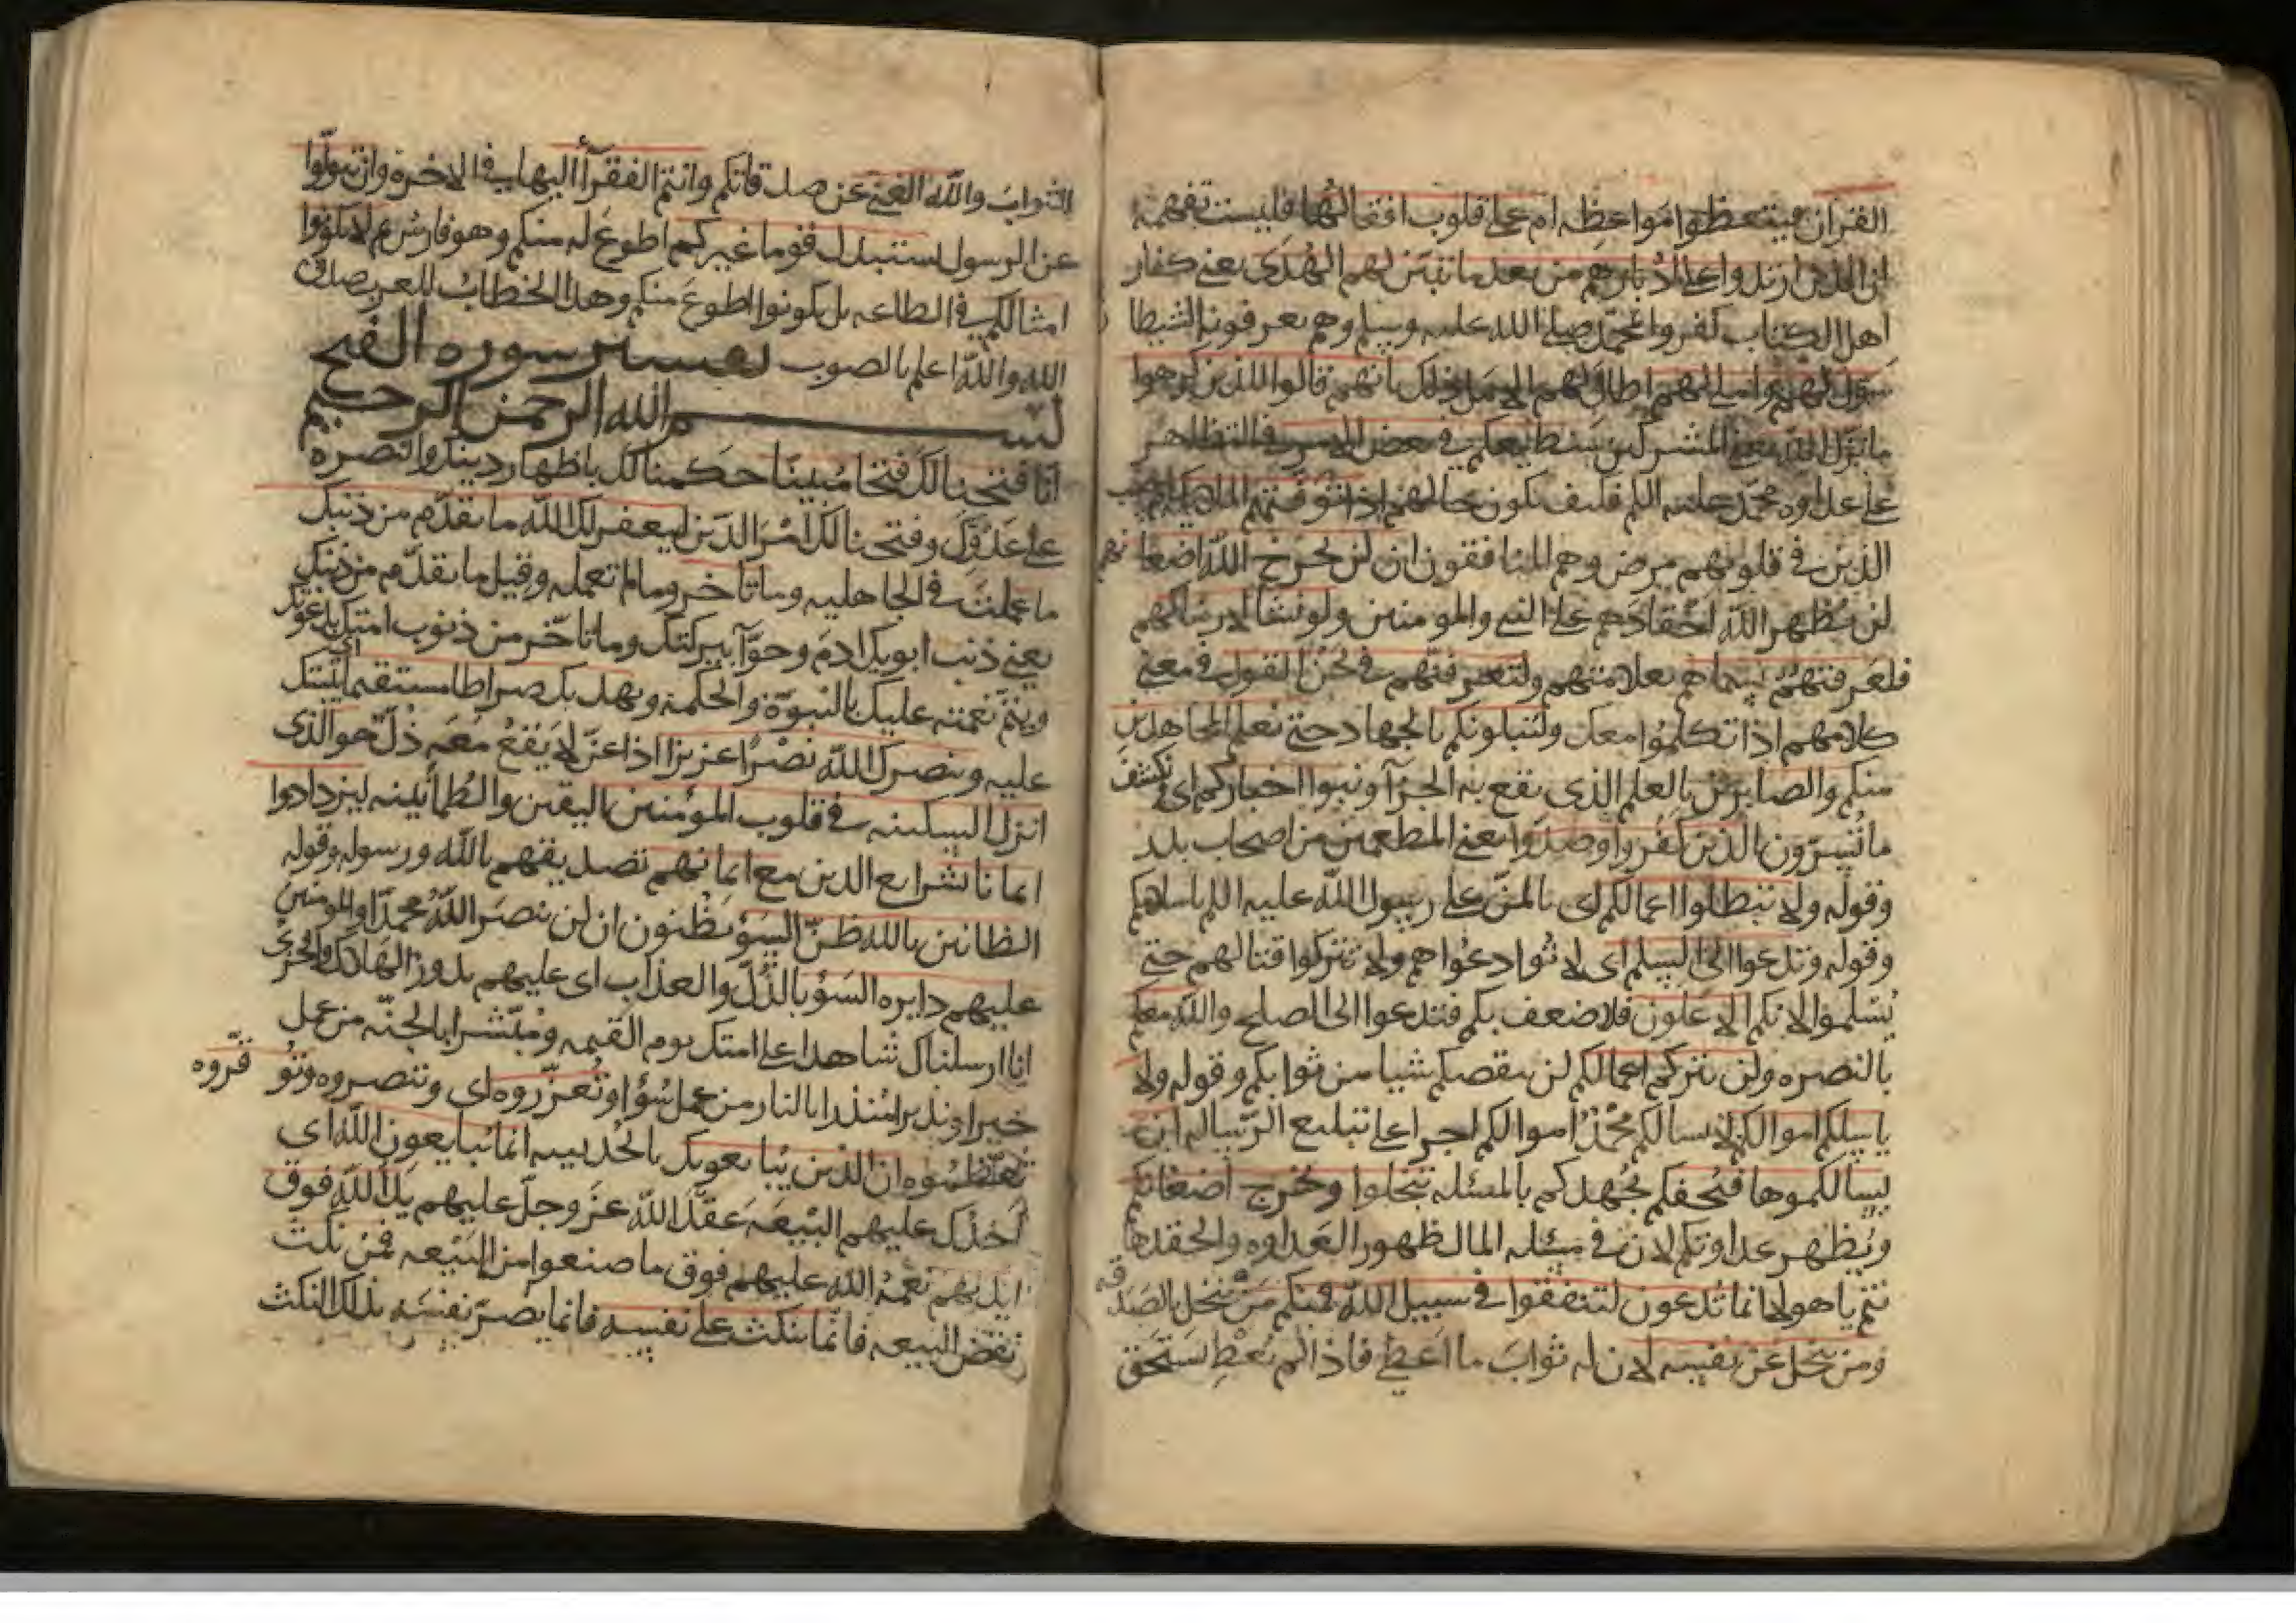 القران فيتعظوا مواعظه ام على قلوب اقفالها فليست تفهمه
ان الذين ارتدوا على ادبارهم من بعد ما تبين لهم الهدى يعني كفار
اهل الكتاب كفروا بمحمد صلى الله عليه وسلم وهم يعرفونه الشيطا
سول لهم واملى لهم اطال لهم الامل ذلك بانهم قالوا للذين كرهوا
ما نزل الله يعني المشركين سنطيعكم في بعض الامر في التظاهر
على عداوه محمد عليه السلم فكيف يكون حالهم اذا توفتهم الملايكه
الذين في قلوبهم مرض وهم المنافقون ان لن يخرج الله اضغانهم
لن يظهر الله احقادهم على النبي والمومنين ولو نشا لاريناكهم
فلعرفتهم بسيماهم بعلامتهم ولتعرفنهم في لحن القول في معنى
كلامهم اذا تكلموا معك ولنبلونكم بالجهاد حتى نعلم المجاهدين
منكم والصابرين بالعلم الذي يقع به الجزآ ونبلوا اخباركم اى نكشف
ما تسرون الذين كفروا وصدوا يعني المطعمين من اصحاب بدر
وقوله ولا تبطلوا اعمالكم اى بالمن على رسول الله عليه السلم باسلامكم
وقوله وتدعوا الى السلم اى لا توادعوهم ولا تتركوا قتالهم حتى
يسلموا لانكم الاعلون فلا ضعف بكم فتدعوا الى الصلح والله معكم
بالنصره ولن يتركم اعمالكم لن ينقصكم شيا من ثوابكم وقوله ولا
يسلكم اموالكم لا يسالكم محمد اموالكم اجرا على تبليغ الرساله ان
يسالكموها فيحفكم يجهدكم بالمسئله تبخلوا ويخرج اضغانكم
ويظهر عداوتكم لان في مسئله المال ظهور العداوه والحقد ها
نتم ياهولا انما تدعون لتنفقوا في سبيل الله فمنكم من يبخل بالصدقه
ومن يبخل عن نفسه لان له ثواب ما اعطى فاذا لم يعط يستحق
الثواب والله الغني عن صدقاتكم وانتم الفقرآ اليها في الاخرة وان تتولوا
عن الرسول يستبدل قوما غيركم اطوع له منكم وهو فارس ثم لا يكونوا
امثالكم في الطاعه بل يكونوا اطوع منكم وهذا الخطاب للعرب صدق
الله والله اعلم بالصوب تفسير سوره الفتح
بسم الله الرحمن الرحيم
انا فتحنا لك فتحا مبينا حكمنا لك باظهار دينك والنصره
على عدوك وفتحنا لك امر الدين ليغفر لك الله ما تقدم من ذنبك
ما عملت في الجاهليه وما تاخر وما لم تعمله وقيل ما تقدم من ذنبك
يعني ذنب ابويك ادم وحوآ ببركتك وما تاخر من ذنوب امتك
ويتم نعمته عليك بالنبوة والحكمه ويهديك صراطا مستقيما اى يثبتك
عليه وينصرك الله نصرا عزيزا اذا عز لا يقع معه ذل هو الذى
انزل السكينه في قلوب المومنين اليقين والطمأنينه ليزدادوا
ايمانا بشرايع الدين مع ايمانهم تصديقهم بالله ورسوله وقوله
الظانين بالله ظن السوء يظنون ان لن ينصر الله محمدا والمومنين
عليهم دايره السوء بالذل والعذاب اى عليهم يدور الهلاك والخزى
انا ارسلناك شاهدا على امتك يوم القيمه ومبشرا بالجنه من عمل
خيرا ونذيرا منذرا بالنار من عمل سؤا وتعزروه اى وتنصروه وتوقروه
تعظموه ان الذين يبايعونك بالحديبيه انما يبايعون الله اى
اخذك عليهم البيعه عقد الله عز وجل عليهم يد الله فوق
ايديهم نعمة الله عليهم فوق ما صنعوا من البيعه فمن نكث
نقض البيعه فانما ينكث على نفسه فانما يضر نفسه بذلك النكث